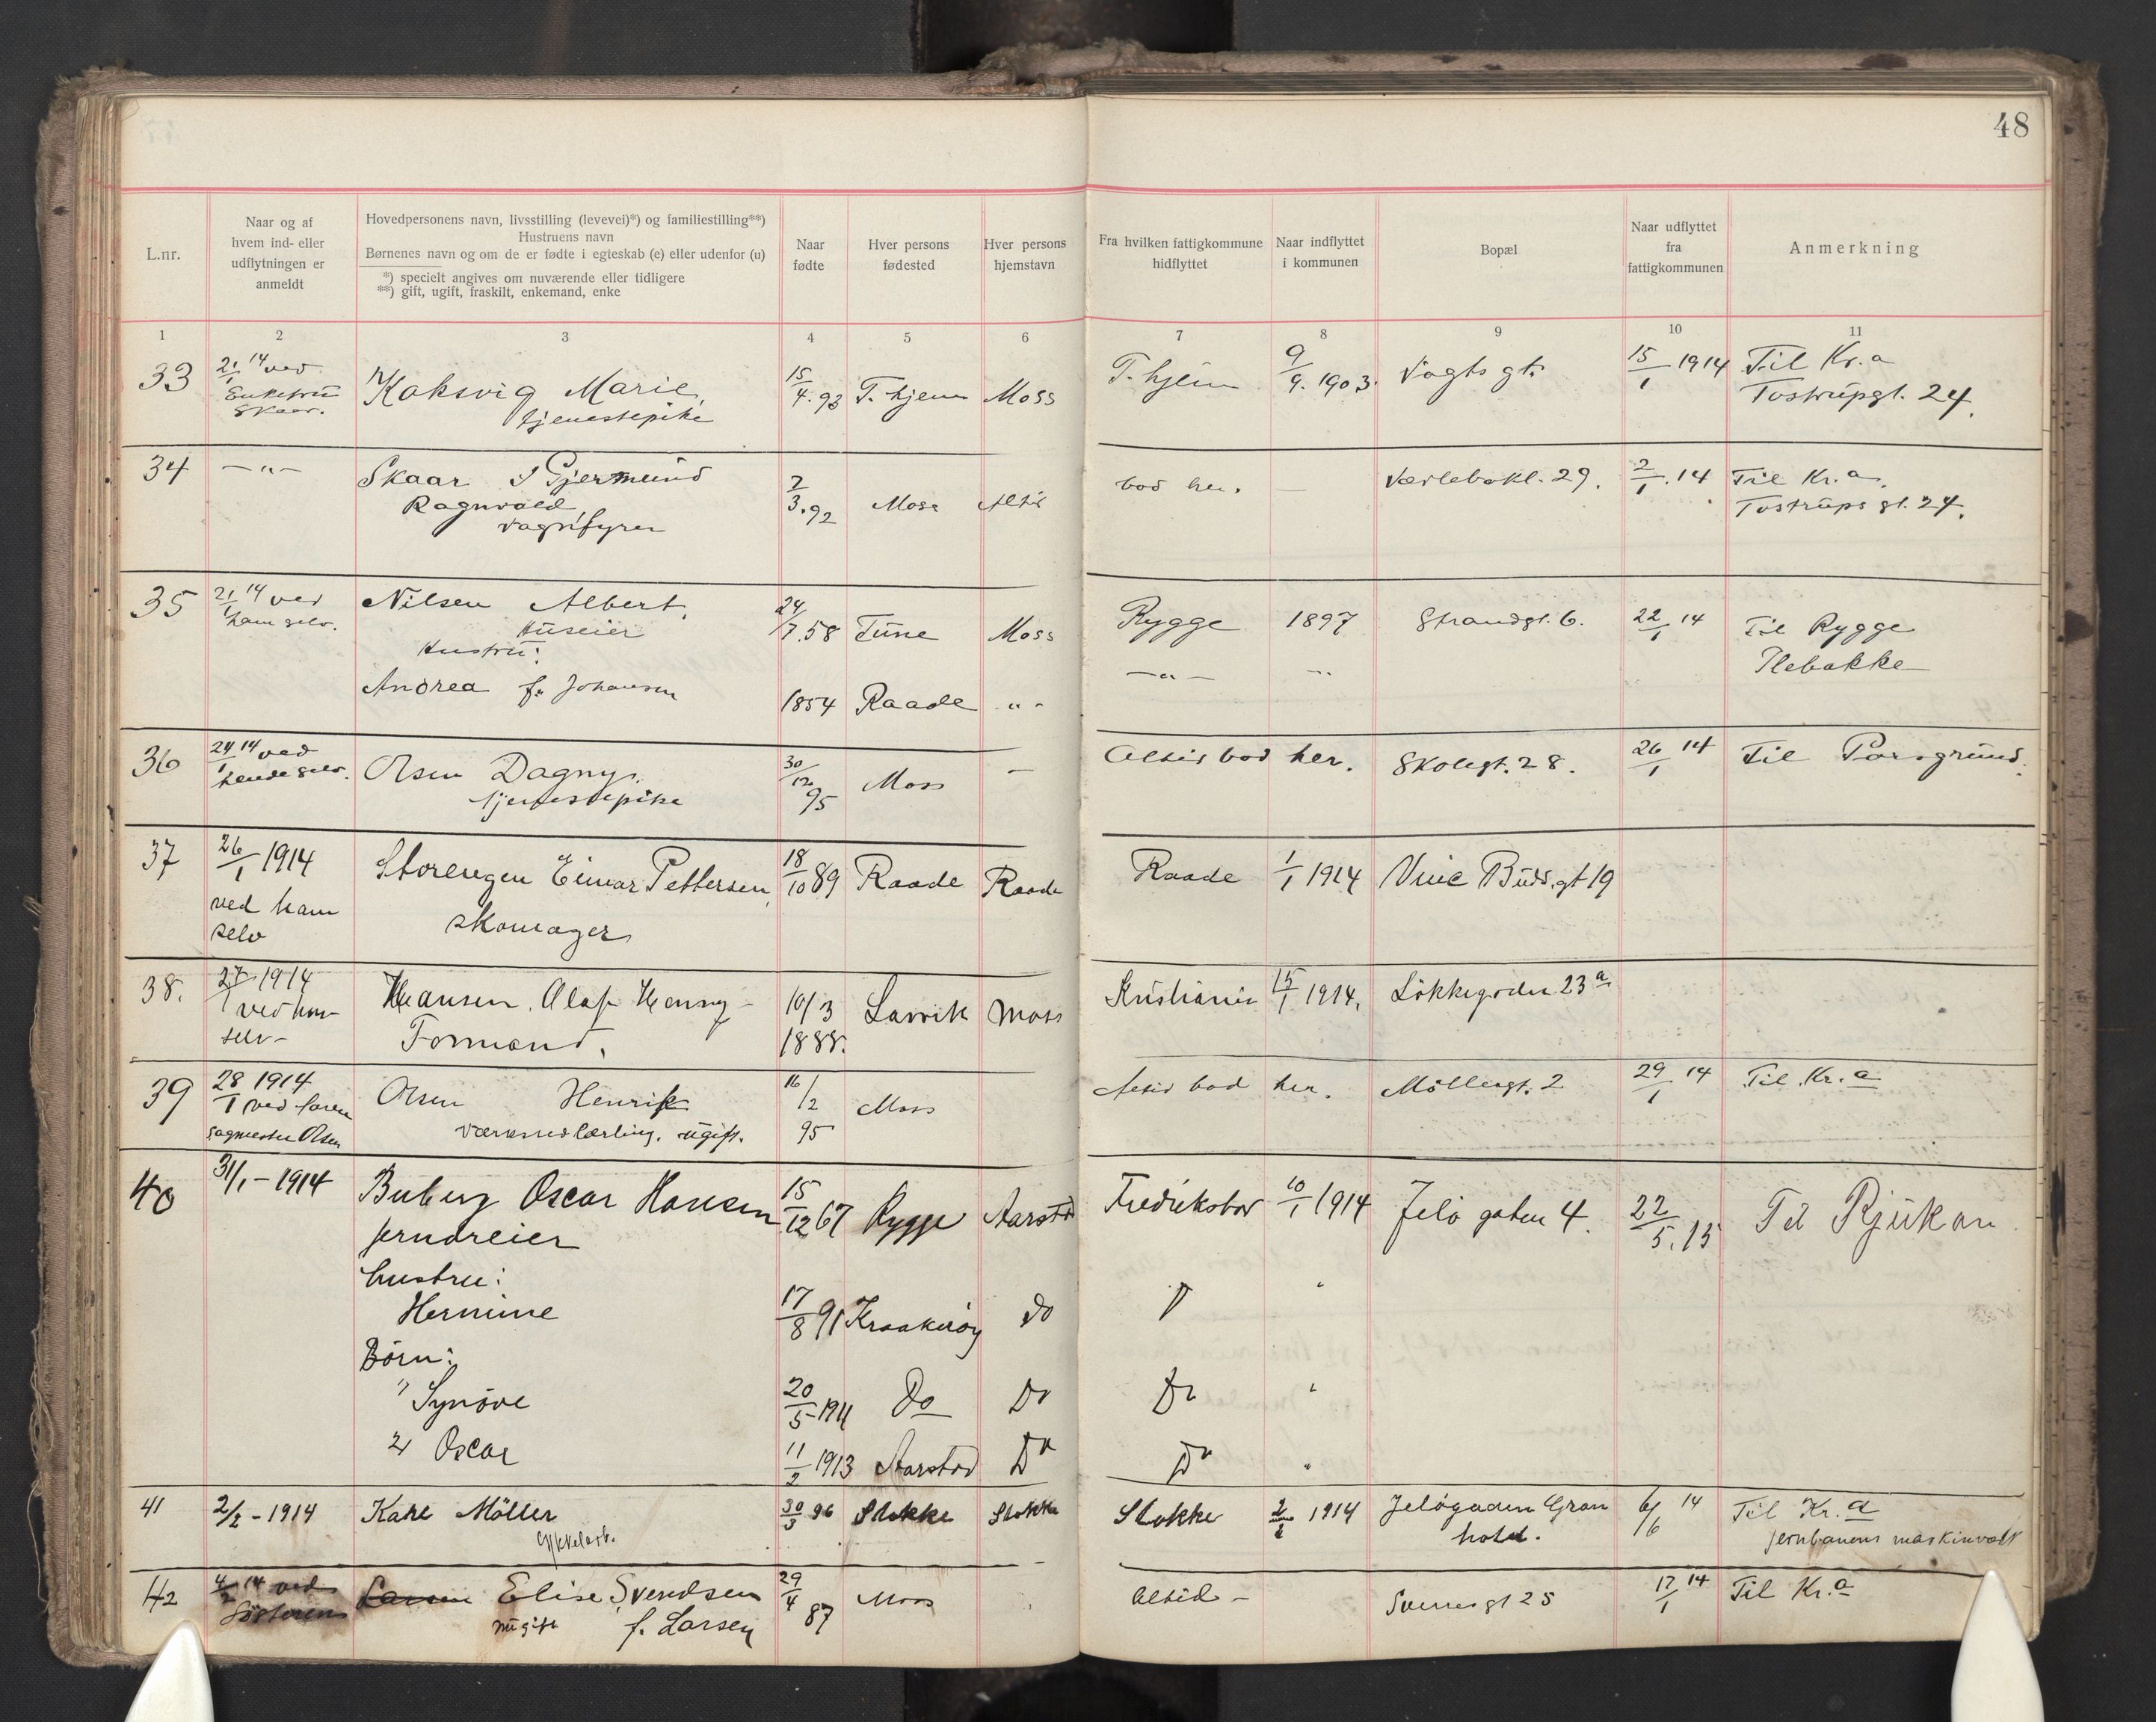 48
L.nr.
Naar og af
hvem ind- eller
udflytningen er
anmeldt
Hovedpersonens navn, livsstilling (levevei)*) og familiestilling**)
Hustruens navn
Børnenes navn og om de er fødte i egteskab (e) eller udenfor (u)
*) specielt angives om nuværende eller tidligere
**) gift, ugift, fraskilt, enkemand, enke
Naar
fødte
Hver persons
fødested
Hver persons
hjemstavn
Fra hvilken fattigkommune
hidflyttet
Naar indflyttet
i kommunen
Bopæl
Naar udflyttet
fra
fattigkommunen
Anmerkning
1 2 3 4 5 6 7 8 9 10 11
33 21/1 14 ved Koksvig Marie, 15/4.93 T.hjem Moss T.hjem 9/9.1903. Vogts gt. 15/1 1914 Til Kr.a
Enkefru tjenestepike Tostrupgt. 24.
Skaar.
34 —"— Skaar Gjermund 2/3.92 Moss Altid bod her. — Værlebakl. 29. 2/1.14 Til Kr.a.
Ragnvald, Tostrups gt. 24.
vognfyrer
35 21/1 14 ved Nilsen Albert, 24/7.58 Tune Moss Rygge 1897 Strandgt. 6. 22/1 14 Til Rygge
ham selv. Huseier Plebakke
Hustru: —"—
Andrea f. Johansen 1854 Raade "-
36 24/1 14 ved Olsen Dagny. 30/12 95 Moss — Altid bod her. Skolegt. 28. 26/1 14 Til Porsgrund.
hende selv. tjenestepike
37 26/1 1914 Storengen Einar Pettersen, 18/10 89 Raade Raade Raade 1/1 1914 Vinc Buds. gt 19
ved ham skomager
selv
38. 27/1 1914 Hansen, Olaf Henry - 10/3 Larvik Moss Kristiania 15/1 1914. Lökkegoden 23a
ved ham Formand. 1888.
selv-
39 28/1 1914 Olsen Henrik 16/2 95 Moss Altid bod her. Möllergt. 2 29/1 14 Til Kr.a
ved faren lærling. ugift.
sagmester Olsen
40 31/1-1914 Buberg Oscar Hansen 15/12 67 Rygge Aarstad Fredrikstad 10/1 1914 Jelö gaten 4. 22/5.15 Til Rjukan
jerndreier
hustru:
Hermine 17/8 91 Kraakeröy do D "
Börn:
" Synöve 20/5-1911 Do Do Do "
2) Oscar 11/2 1913 Aarstad Do Do "
41 2/2-1914 Kare Möller 30/3 96 Stokke Stokke Stokke 2/1 1914 Jelögaden Gran 6/6 14 Til Kr.a
hold. jernbanens maskinvolt
42 4/2 14 ved Larsen Elise Svendsen 29/4 87 Moss Altid - Svenesgt 25 17/1 14 Til Kr.a
Sösteren nu gift f. Larsen